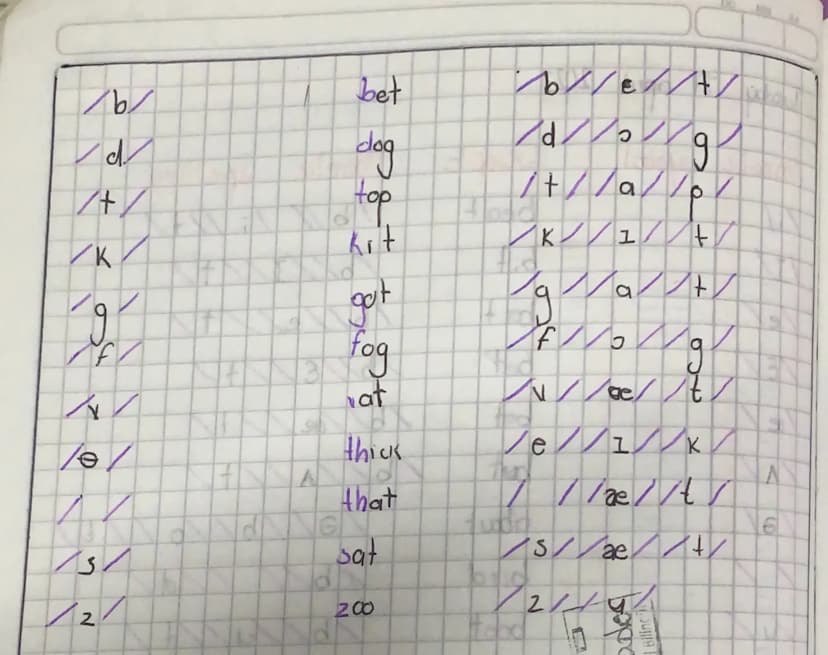 /b/ bet /b/ /ε/ /t/
/d/ dog /d/ /ɔ/ /g/
/t/ top /t/ /a/ /p/
/k/ kit /k/ /I/ /t/
/g/ got /g/ /a/ /t/
/f/ fog /f/ /ɔ/ /g/
/v/ vat /v/ /æ/ /t/
/θ/ thick /e/ /I/ /k/
/ / that / / /æ/ /t/
/s/ sat /s/ /æ/ /t/
/z/ zoo /z/ /u/